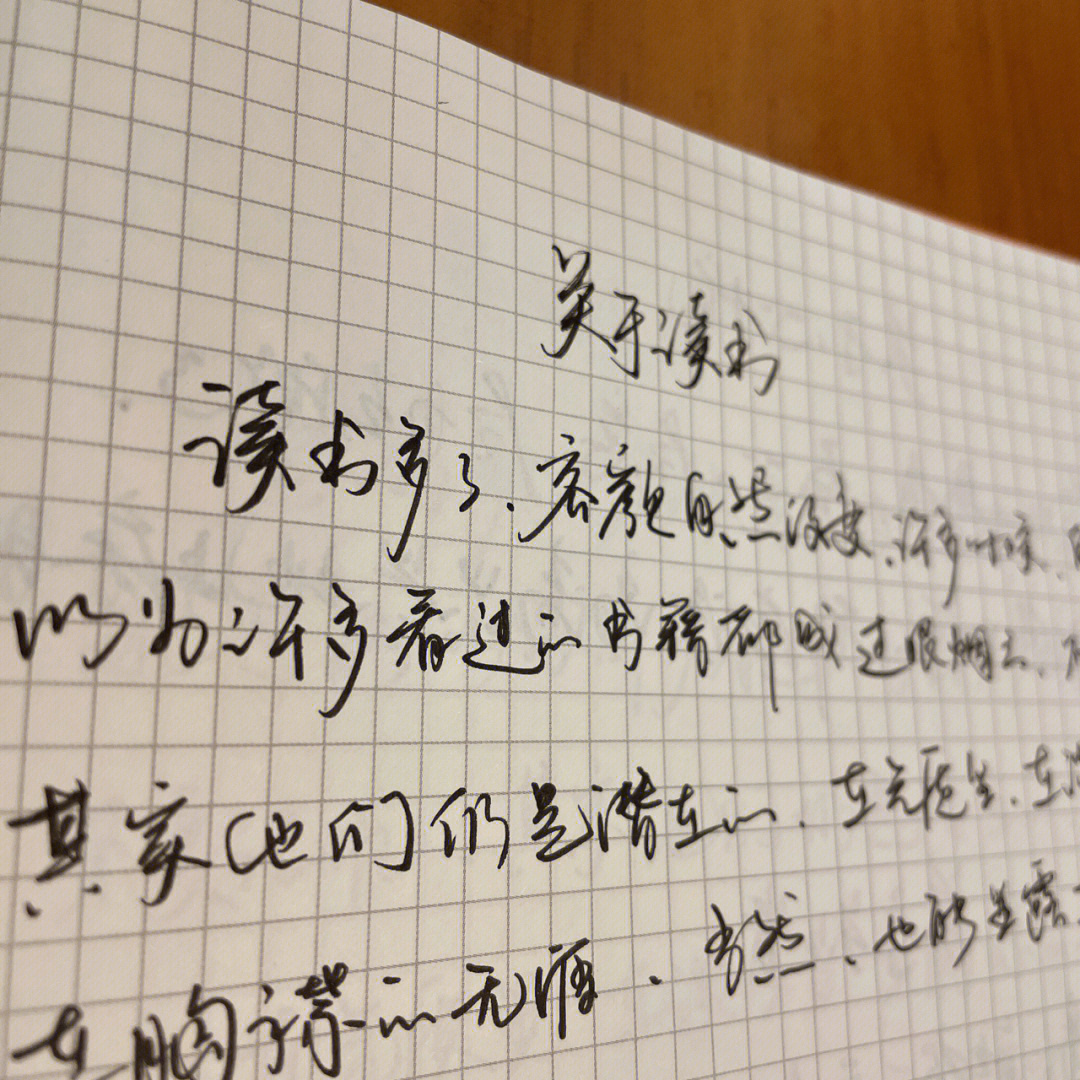 关于读书
读书多了、容颜自然改变、许多时候、
以为许多看过的书籍都成过眼烟云、
其实他们仍是潜在的、在气质里、在
在胸襟的无涯、当然、也能显露